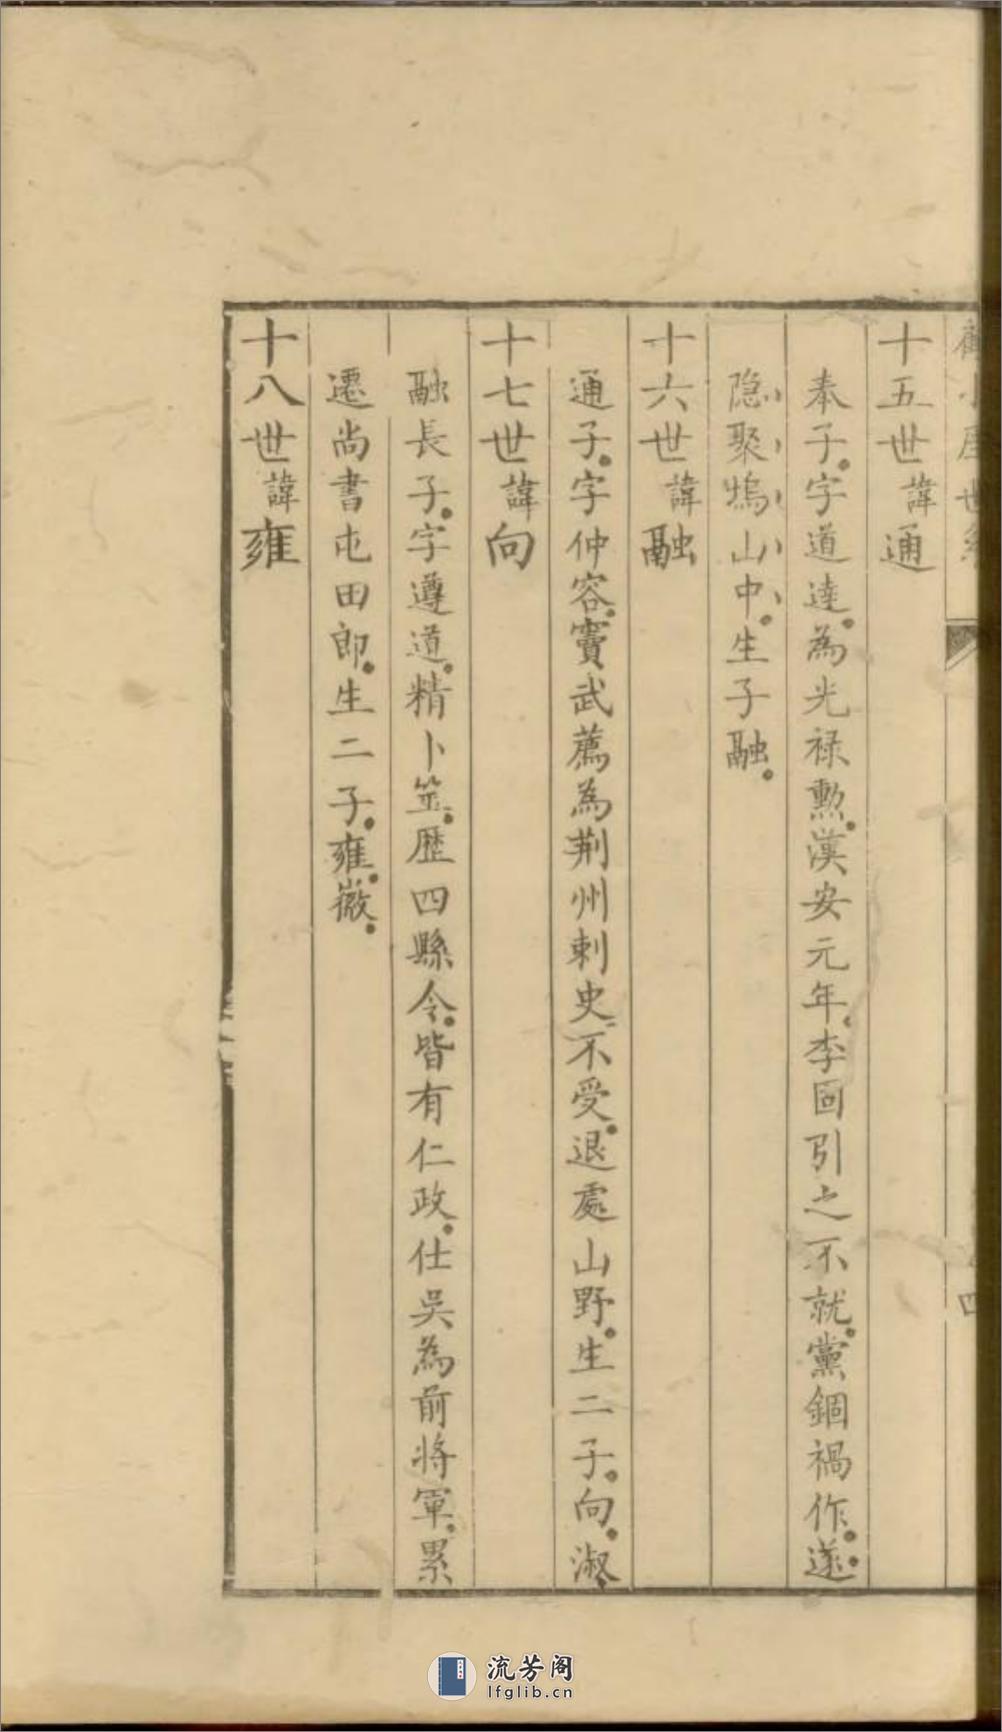 十五世諱通
奉子字道達為光祿勲漢安元年李固引之不就黨錮禍作遂
隐聚塢山中生子融
十六世諱融
通子字仲容竇武薦為荆州刺史不受退處山野生二子向淑
十七世諱向
融長子字遵道精卜筮歷四縣令皆有仁政仕吳為前將軍累
遷尚書屯田郎生二子雍微
十八世諱雍
流芳阁
lfglib.cn